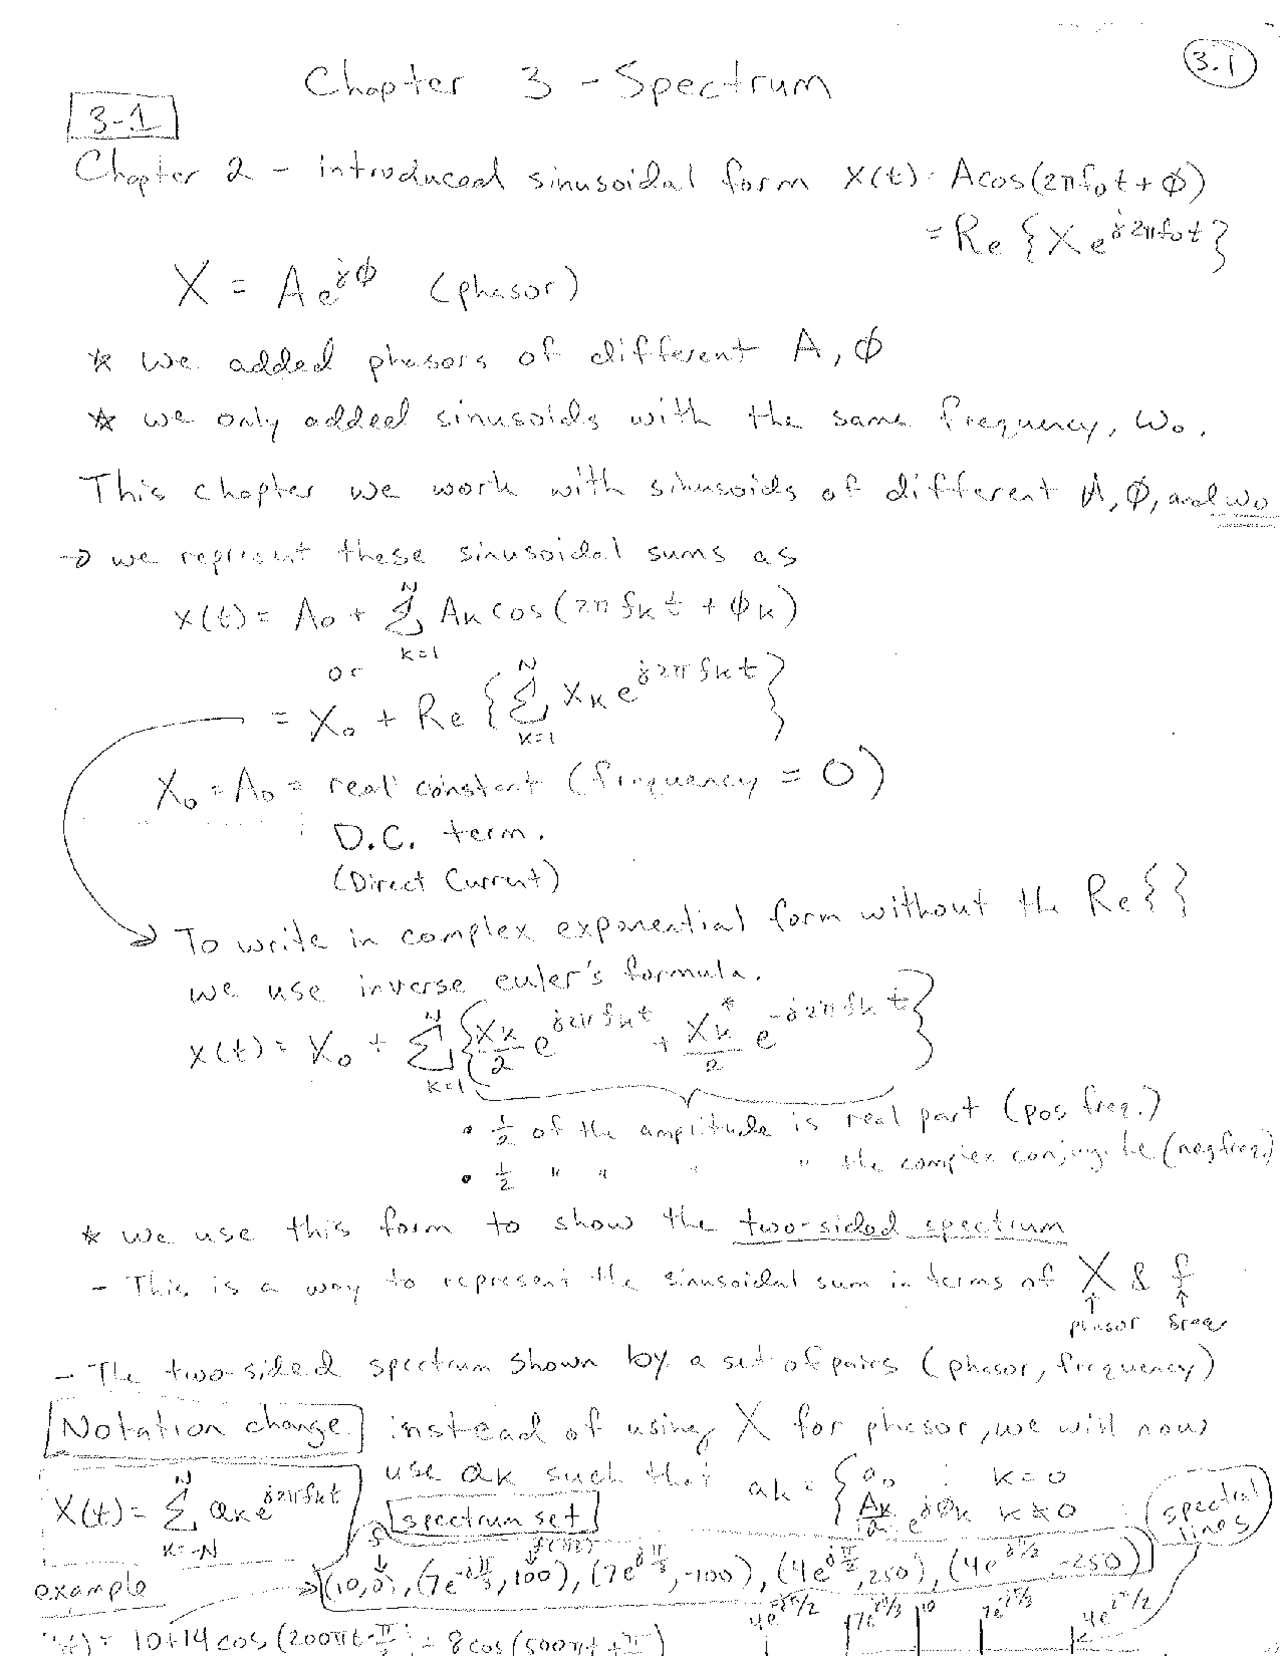 3.1
Chapter 3 - Spectrum
3-1
Chapter 2 - introduced sinusoidal form x(t) = Acos(2πf₀t + ϕ)
= Re {X e^{j2πf₀t}}
X = A e^{jϕ} (phasor)
* we added phasors of different A, ϕ
* we only added sinusoids with the same frequency, ω₀.
This chapter we work with sinusoids of different A, ϕ, and ω₀
→ we represent these sinusoidal sums as
x(t) = A₀ + Σ_{k=1}^{N} A_k cos(2πf_k t + ϕ_k)
or
= X₀ + Re {Σ_{k=1}^{N} X_k e^{j2πf_k t}}
X₀ = A₀ = real constant (frequency = 0)
D.C. term.
(Direct Current)
→ To write in complex exponential form without the Re{ }
we use inverse euler's formula.
x(t) = X₀ + Σ_{k=1}^{N} {X_k/2 e^{j2πf_k t} + X_k^*/2 e^{-j2πf_k t}}
• 1/2 of the amplitude is real part (pos freq.)
• 1/2 " " " " the complex conjugate (neg freq.)
* we use this form to show the two-sided spectrum
- This is a way to represent the sinusoidal sum in terms of X & f
↑ ↑
phasor freq
- The two-sided spectrum shown by a set of pairs (phasor, frequency)
Notation change instead of using X for phasor, we will now
use a_k such that a_k = { a₀ k=0
A_k/2 e^{jϕ_k} k≠0
X(t) = Σ_{k=-N}^{N} a_k e^{j2πf_k t}
spectrum set
spectral lines
example
→ {(10,0), (7e^{-jπ/3}, 100), (7e^{jπ/3}, -100), (4e^{jπ/2}, 250), (4e^{-jπ/2}, -250)}
10
= 10+14 cos(200πt - π/3) + 8cos(500πt + π/2)